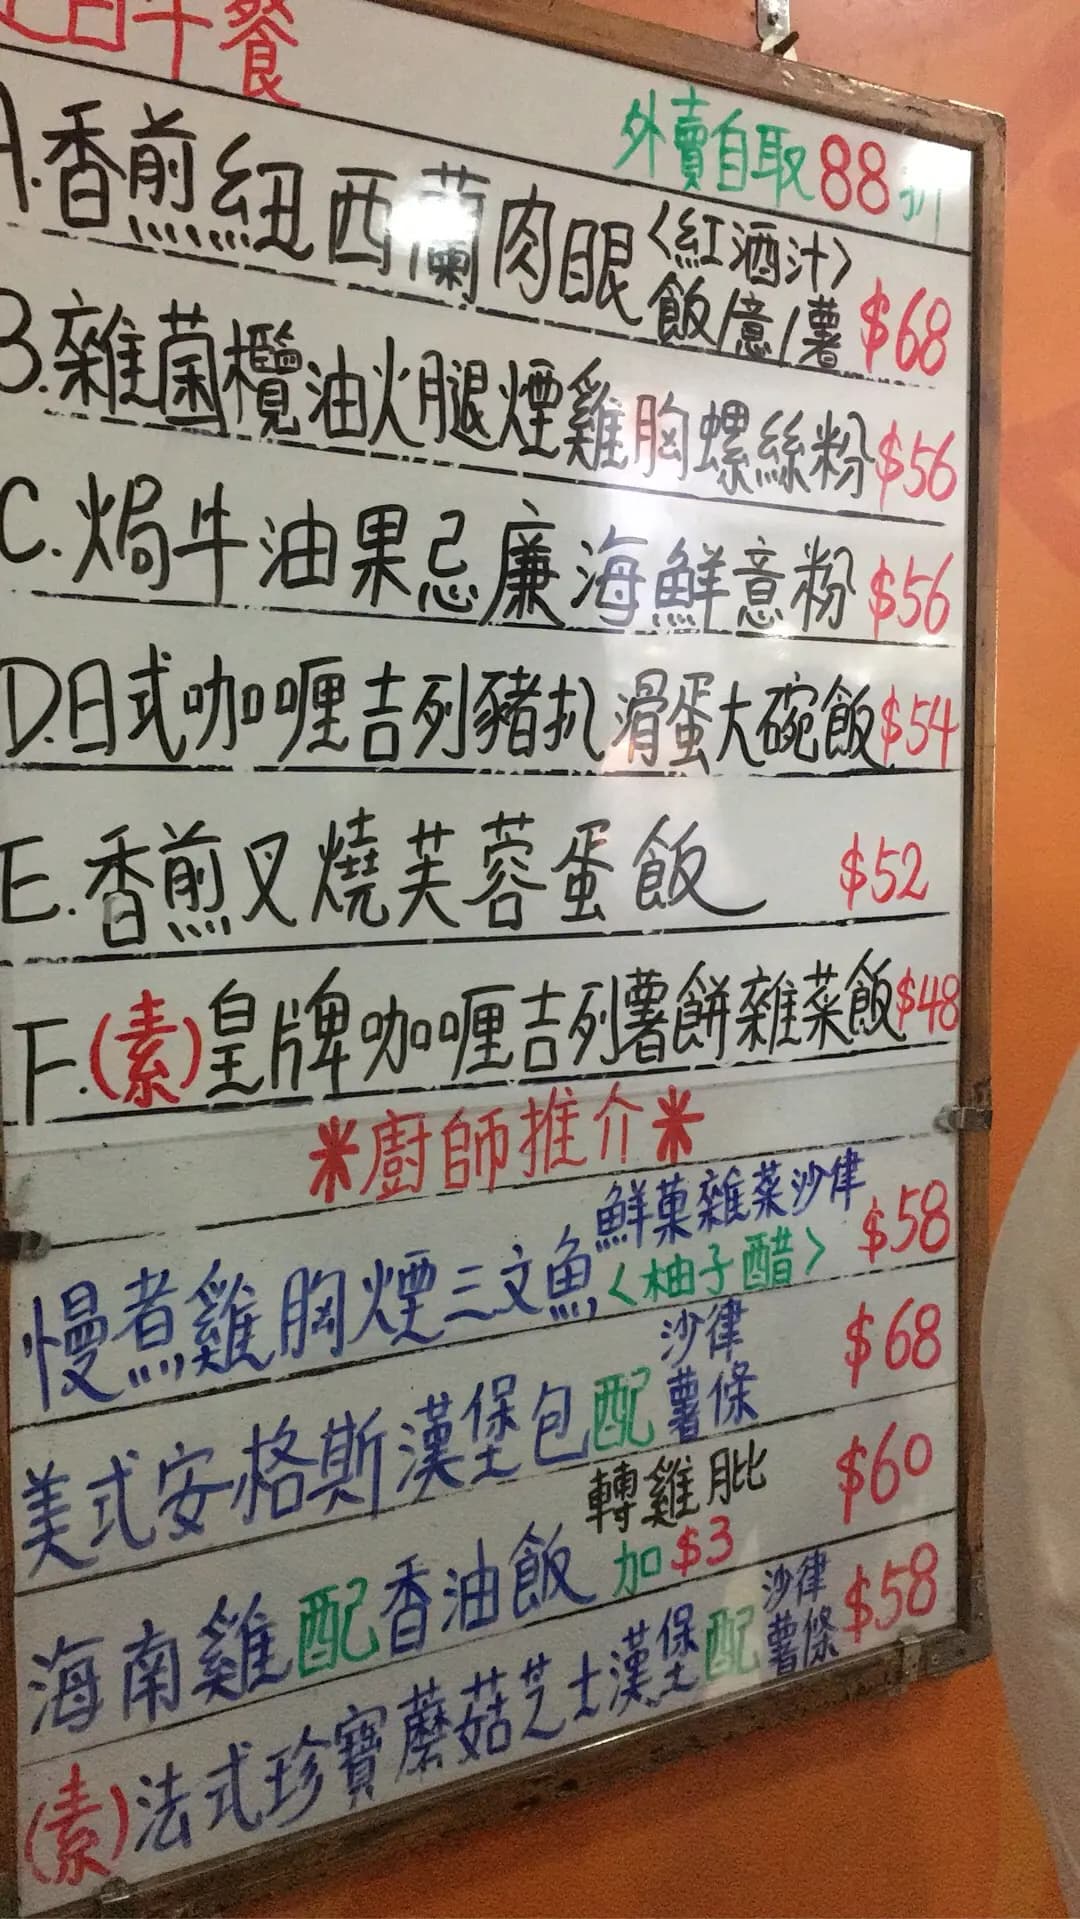 日午餐
外賣自取88折
A.香煎紐西蘭肉眼<紅酒汁>
飯/意/薯 $68
B.雜菌欖油火腿煙雞胸螺絲粉 $56
C.焗牛油果忌廉海鮮意粉 $56
D.日式咖喱吉列豬扒滑蛋大碗飯 $54
E.香煎叉燒芙蓉蛋飯 $52
F.(素)皇牌咖喱吉列薯餅雜菜飯 $48
*廚師推介*
慢煮雞胸煙三文魚 鮮菓雜菜沙律 $58
<柚子醋>
美式安格斯漢堡包配 沙律 $68
薯條
海南雞配香油飯 轉雞肶 $60
加$3
(素)法式珍寶蘑菇芝士漢堡配 沙律 $58
薯條